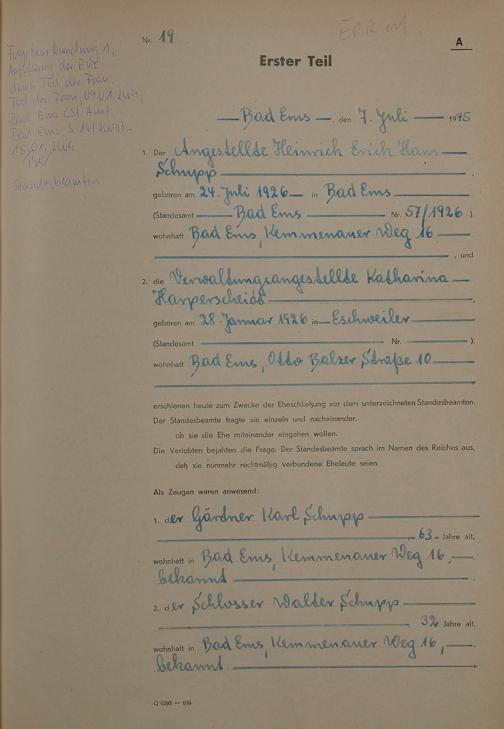 Nr. 19
A
Erster Teil
Folgebeurkundung 1,
Auflösung der Ehe
durch Tod der Frau.
Tod der Frau, 09.01.
Bad Ems (St. Amt
Bad Ems
Standesbeamtin
Bad Ems, den 7. Juli 1945
1. Der Angestellte Heinrich Erich Hans
Schupp,
geboren am 24. Juli 1926 in Bad Ems
(Standesamt Bad Ems Nr. 57/1926 ).
wohnhaft Bad Ems, Kemmenauer Weg 16
, und
2. die Verwaltungsangestellte Katharina
Harperscheidt,
geboren am 28. Januar 1926 in Eschweiler
(Standesamt Nr. ).
wohnhaft Bad Ems, Otto Balzer Straße 10
erschienen heute zum Zwecke der Eheschließung vor dem unterzeichneten Standesbeamten.
Der Standesbeamte fragte sie einzeln und nacheinander,
ob sie die Ehe miteinander eingehen wollen.
Die Verlobten bejahten die Frage. Der Standesbeamte sprach im Namen des Reiches aus,
daß sie nunmehr rechtmäßig verbundene Eheleute seien.
Als Zeugen waren anwesend:
1. der Gärdner Karl Schupp
63 Jahre alt,
wohnhaft in Bad Ems, Kemmenauer Weg 16,
bekannt
2. der Schlosser Walter Schupp
32 Jahre alt,
wohnhaft in Bad Ems, Kemmenauer Weg 16,
bekannt.